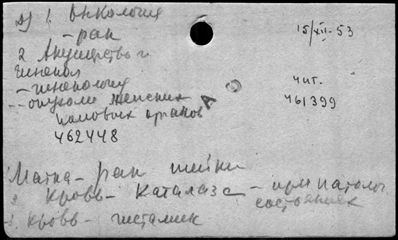 1. Онкология
15/XII-53
- рак
2 Акушерство и
гинекол
- гинекология
чит.
-- опухоли женских
461399
половых органов
А О
462448
Матка - рак шейки
Кровь - каталаза - при патолог
состояниях
Кровь - гистамин